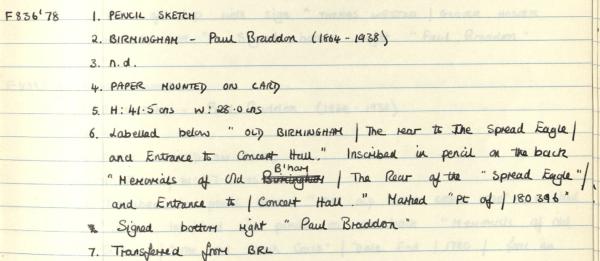 F836'78 1. PENCIL SKETCH
2. BIRMINGHAM - Paul Braddon (1864-1938)
3. n.d.
4. PAPER MOUNTED ON CARD
5. H: 41.5 cms W: 28.0 cms
6. Labelled below "OLD BIRMINGHAM / The rear to The Spread Eagle /
and Entrance to Concert Hall." Inscribed in pencil on the back
"Memorials of Old B'ham / The Rear of the "Spread Eagle" /
and Entrance to / Concert Hall." Marked "Pt of / 180396"
Signed bottom right "Paul Braddon"
7. Transferred from BRL